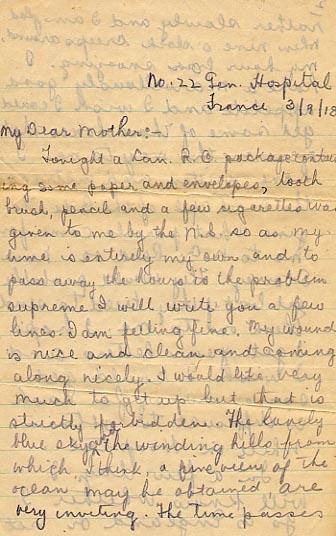 No. 22 Gen. Hospital
France 3/9/18
My Dear Mother:-
Tonight a Can. R.C. package contain
ing some paper and envelopes, tooth
brush, pencil and a few cigarettes was
given to me by the N.S. so as my
time is entirely my own and to
pass away the hours is the problem
supreme I will write you a few
lines. I am feeling fine. My wound
is nice and clean and coming
along nicely. I would like very
much to get up but that is
strictly forbidden. The lovely
blue sky & the winding hills from
which I think, a fine view of the
ocean may be obtained are
very inviting. The time passes